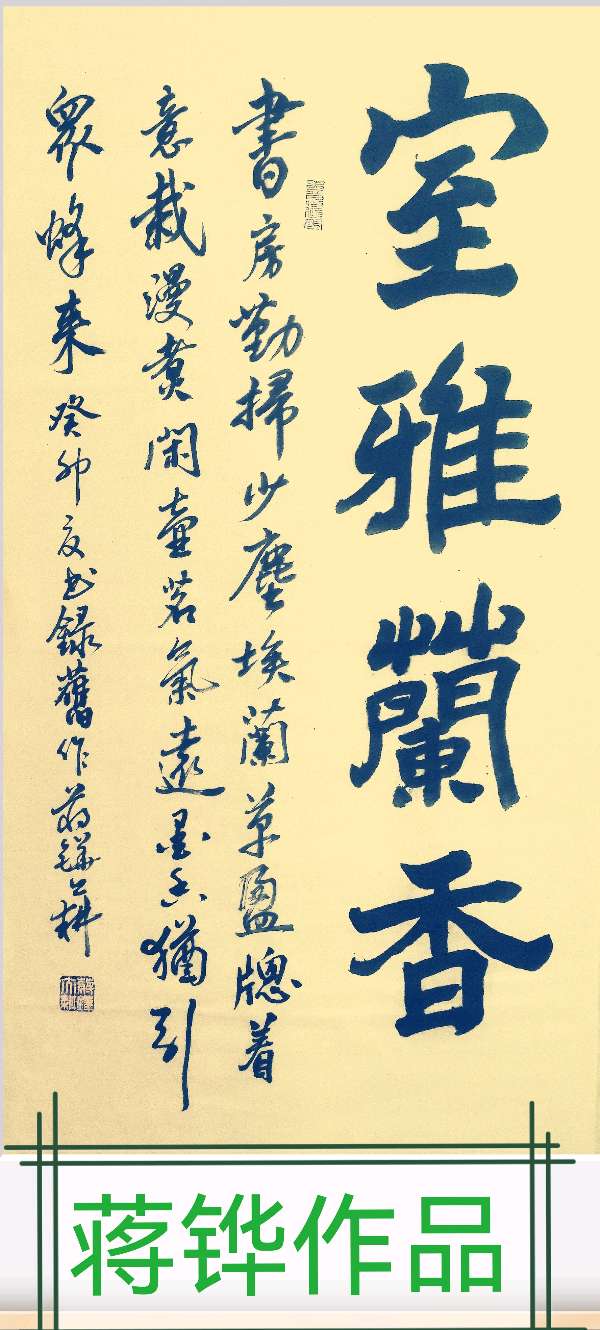 室雅蘭香
書房勤掃少塵埃蘭草盈牕着
意栽漫煮閑壺茗氣遠墨香猶引
眾蜂來癸卯夏書録舊作蔣鏵耕
蒋铧作品